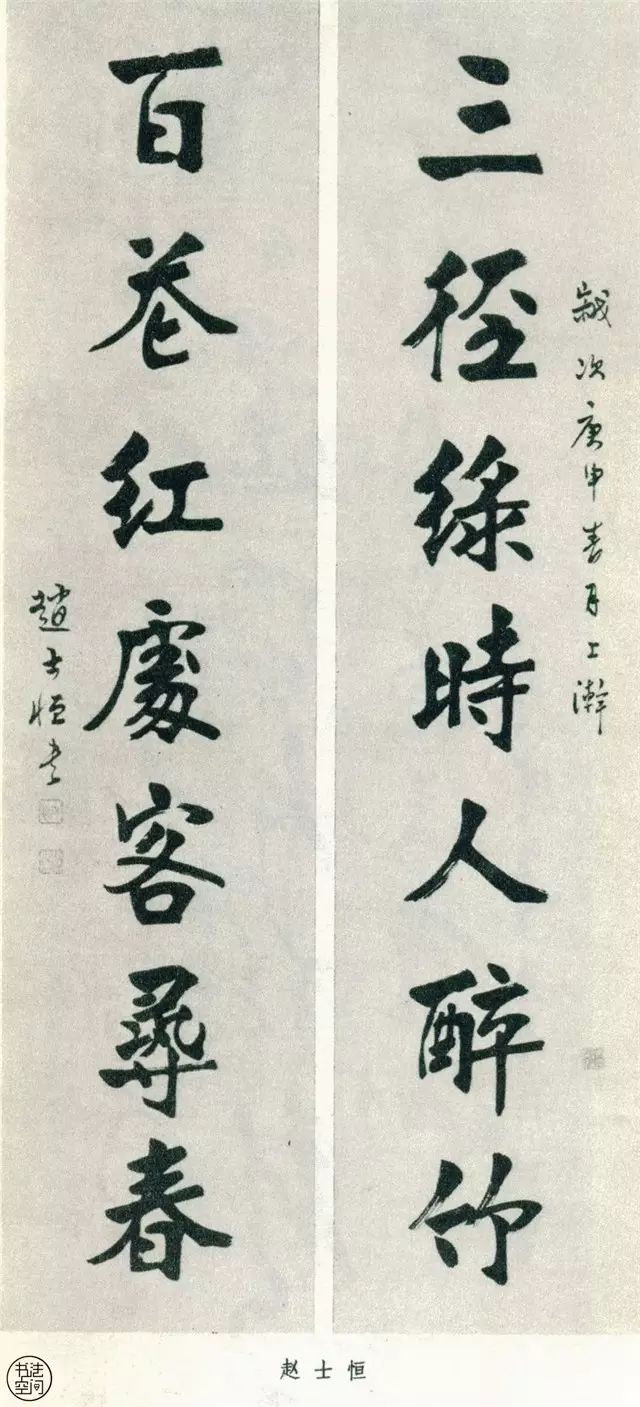 歲次庚申春月上澣
三徑綠時人醉竹
百巷紅處客尋春
趙士恒书
赵士恒
书法空间